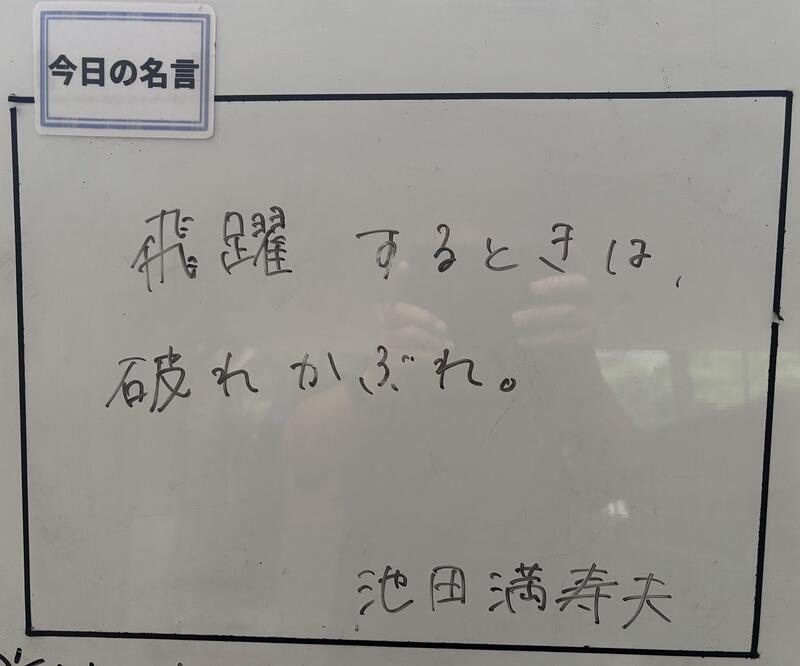 今日の名言
飛躍するときは、
破れかぶれ。
池田満寿夫